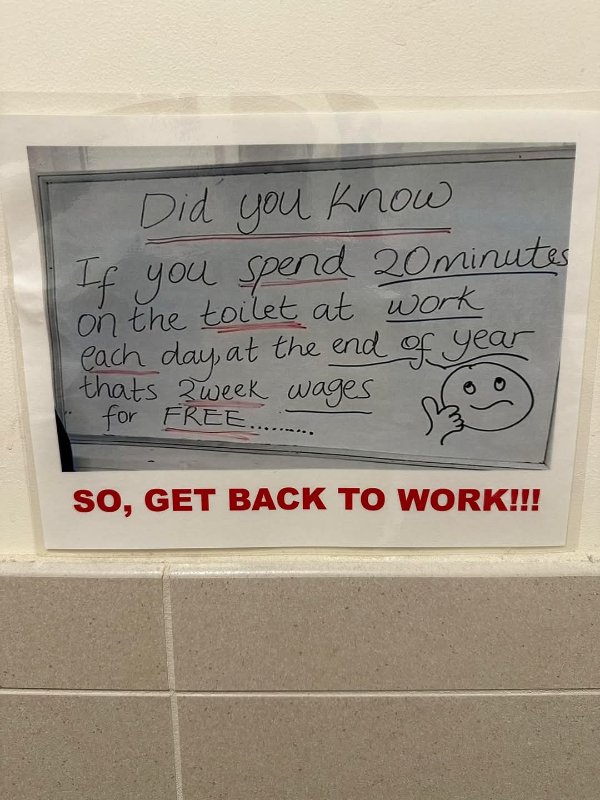 Did you know
If you spend 20minutes
on the toilet at work
each day, at the end of year
thats 2week wages
for FREE..........
SO, GET BACK TO WORK!!!